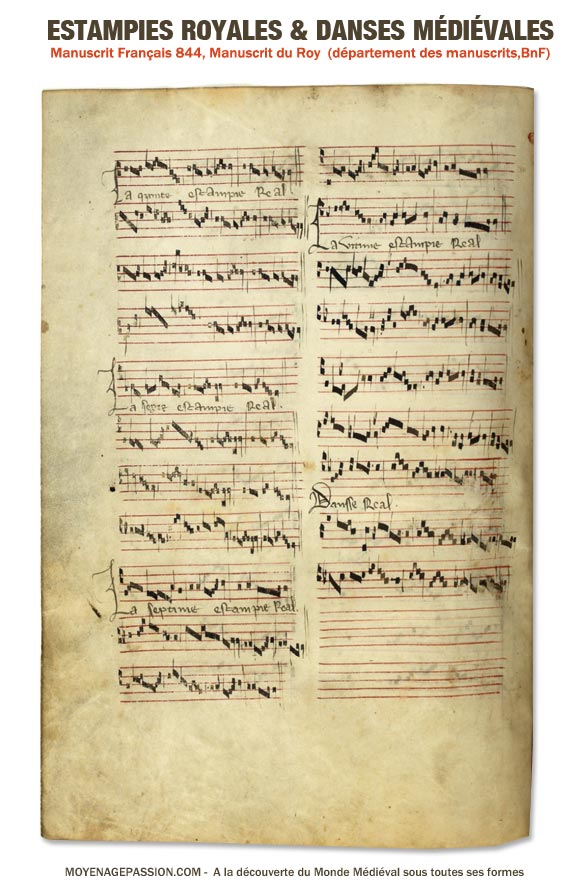 ESTAMPIES ROYALES & DANSES MÉDIÉVALES
Manuscrit Français 844, Manuscrit du Roy (département des manuscrits,BnF)
La quinte estampie Real.
La sexte estampie Real.
La septime estampie Real.
La uitime estampie Real
Dansse Real.
MOYENAGEPASSION.COM - A la découverte du Monde Médiéval sous toutes ses formes